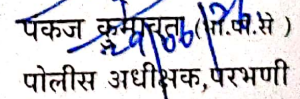 पंकज कुमावत (भा.पो.से )
पोलीस अधीक्षक,परभणी